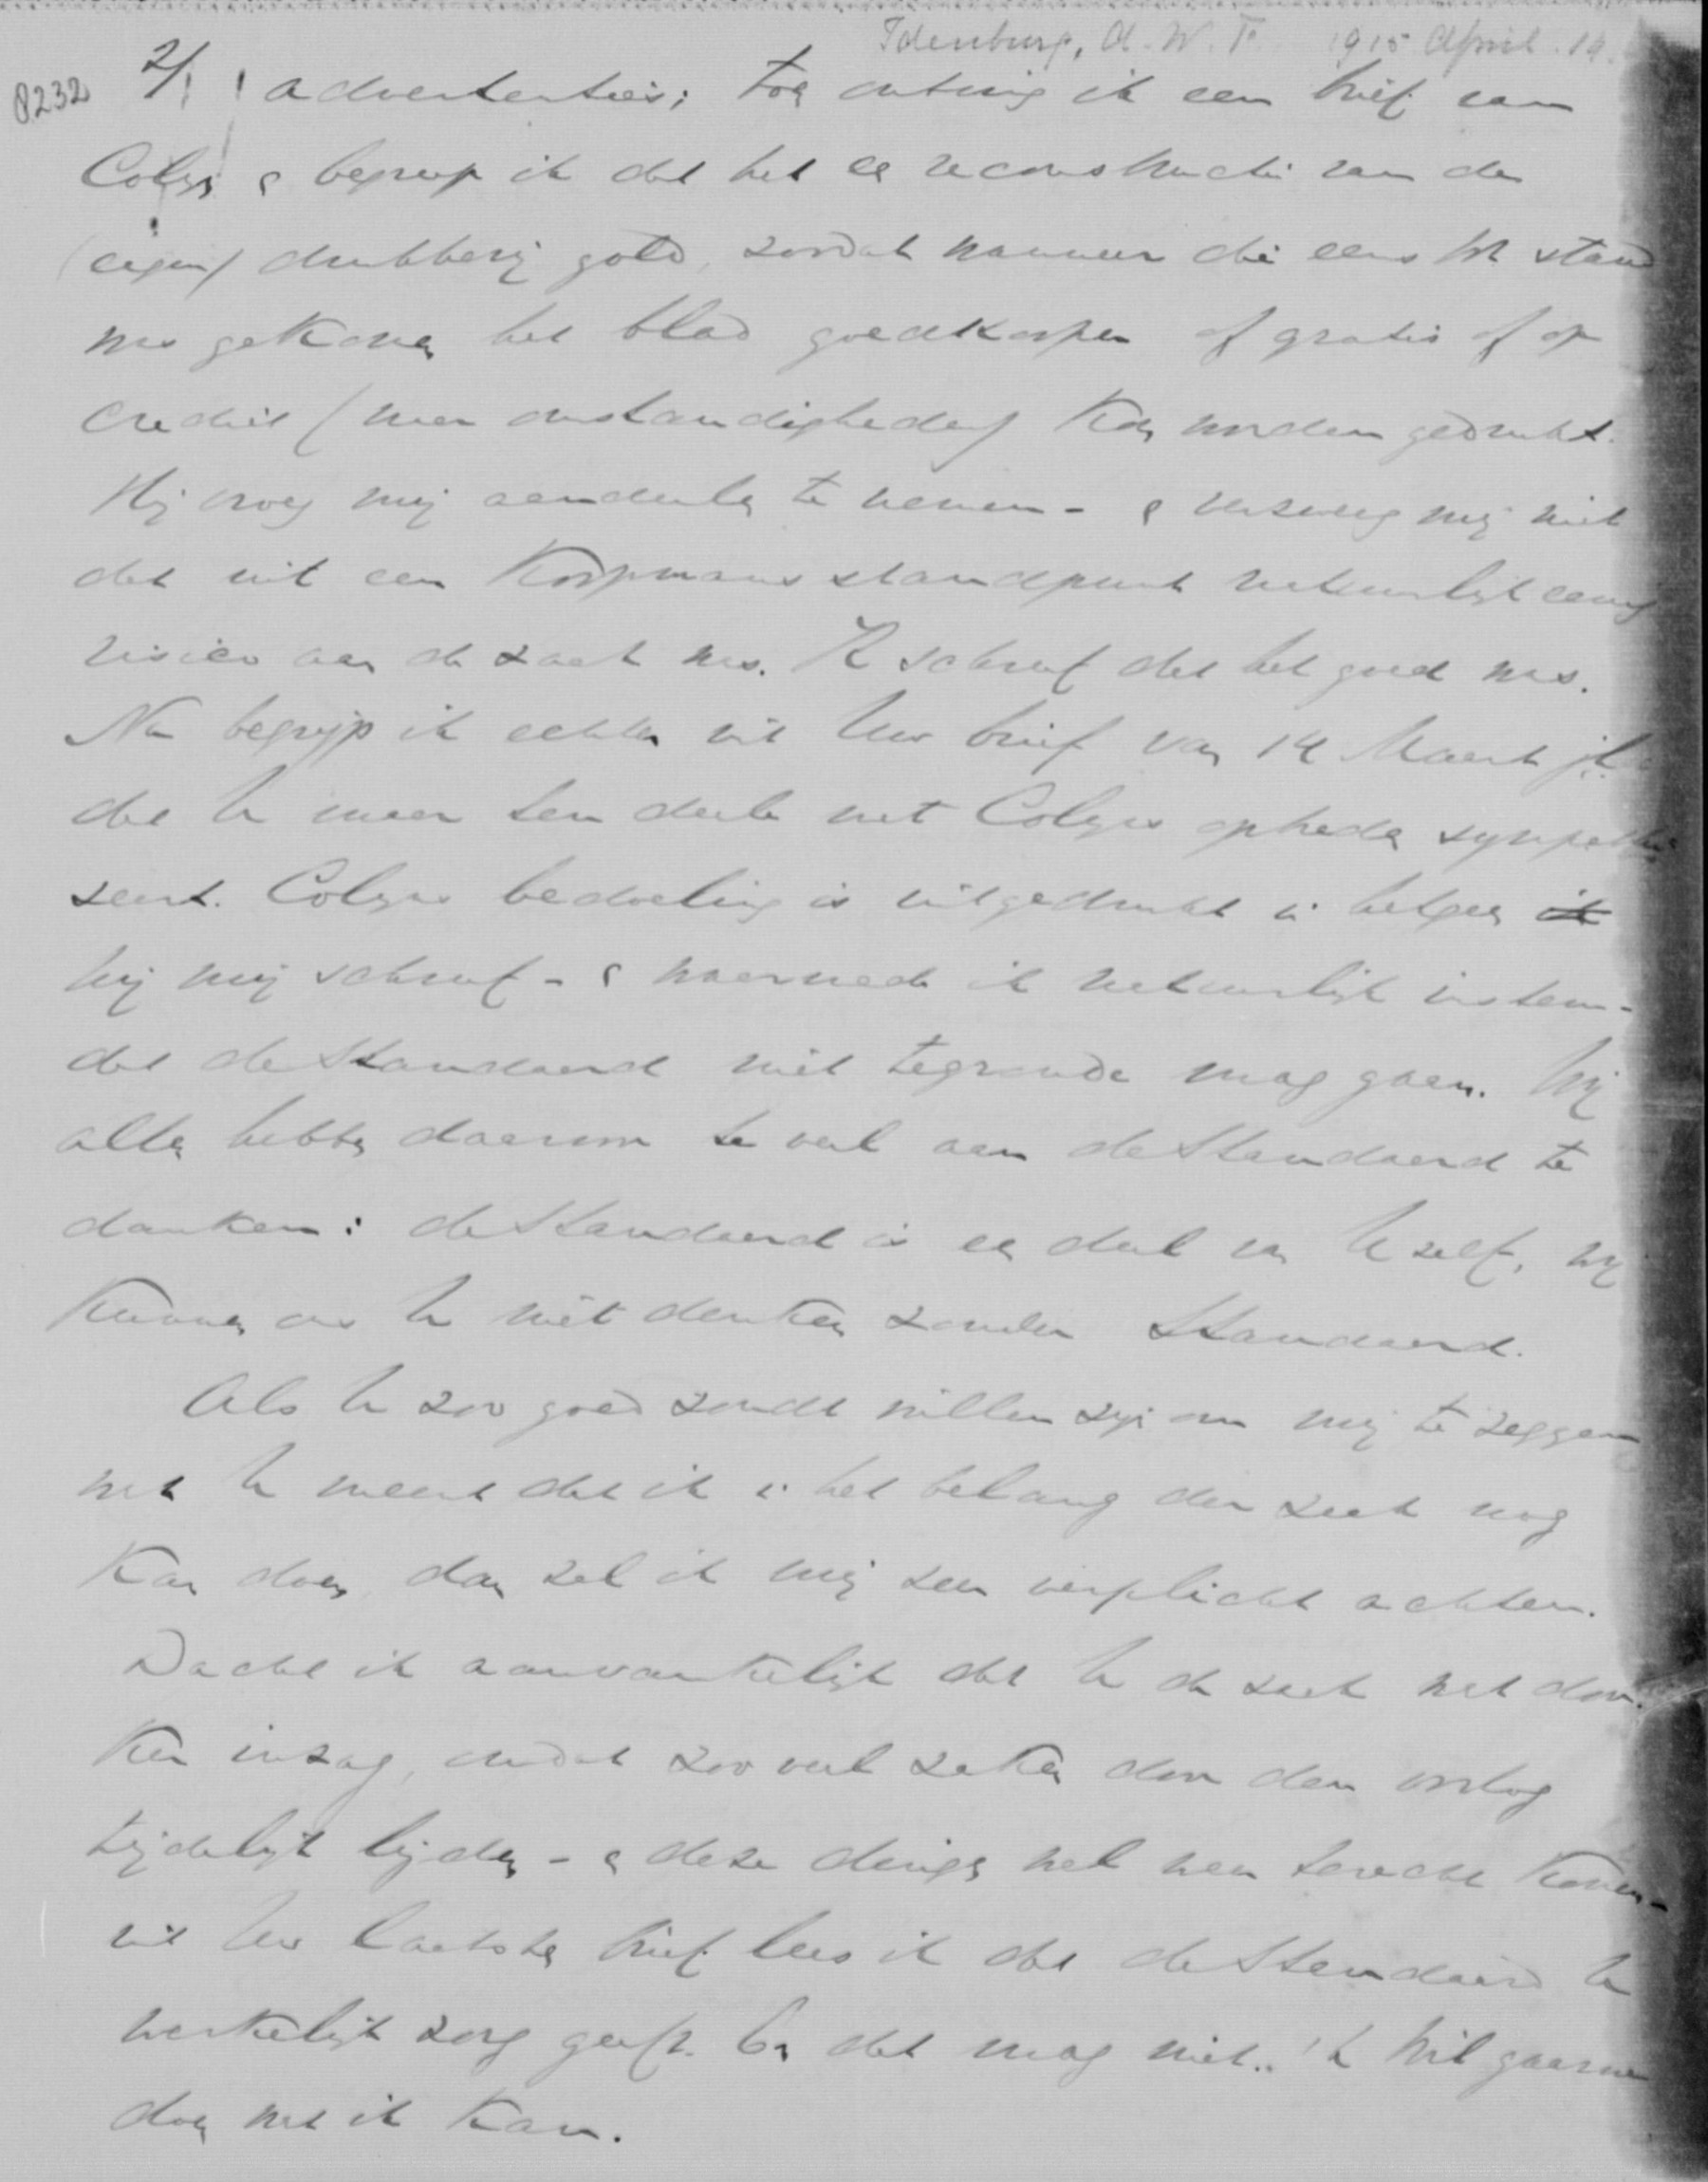 Idenburg, A. W. F. 1915 April 14.
8232 2/. advertenties; toe ontving ik een brief van
Colijn & begreep ik dat het ee reconstructie van de
(eigen) drukkerij gold, zoodat wanneer die eens tot stand
was gekomen het blad goedkooper of gratis of op
crediet (naar omstandigheden) kon worden gedrukt.
Hij vroeg mij aandeelen te nemen - & verzweeg mij niet
dat uit een Koopmansstandpunt natuurlijk eenig
risico aan de zaak was. Ik schreef dat het goed was.
Nu begrijp ik echter uit Uw brief van 14 Maart jl.
dat U maar ten deele met Colijns opheden sympathi
seert. Colijns bedoeling is uitgedrukt in hetgeen
hij mij schreef - & waarmede ik natuurlijk instem -
dat de Standaard niet tegronde mag gaan. Wij
allen hebben daarom te veel aan de Standaard te
danken: de Standaard is ee deel van Uzelf, wij
kunnen ons U niet denken zonder Standaard.
Als U zoo goed zoudt willen zijn om mij te zeggen
wat U meent dat ik in het belang der zaak nog
kan doen, dan zal ik mij zeer verplicht achten.
Dacht ik aanvankelijk dat U de zaak wat don-
ker inzag, omdat zooveel zaken door den oorlog
tijdelijk lijden - & deze dingen wel weer terecht komen -
uit Uw laatsten brief lees ik dat de Standaard U
werkelijk zorg geeft. En dat mag niet.. 'k Wil gaarne
doen wat ik kan.